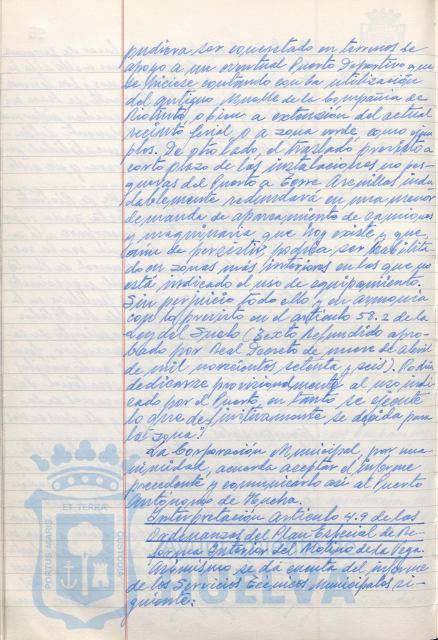 pudiera ser concretado en terrenos de
apoyo a un eventual Puerto Deportivo que
se hiciese contando con la utilización
del antiguo Muelle de la Compañía de
Riotinto, o bien a extensión del actual
recinto ferial o a zona verde, como ejem
plos. De otro lado, el traslado previsto a
corto plazo de las instalaciones no pes-
queras del Puerto a Torre Arenillas indu
dablemente redundará en una menor
demanda de aparcamiento de camiones
y maquinaria que hoy existe y que,
de persistir, podría ser habilita
do en zonas más interiores en las que ya
está indicado el uso de equipamiento.
Sin perjuicio todo ello y en armonía
con lo previsto en el artículo 58.2 de la
Ley del Suelo (Texto Refundido apro-
bado por Real Decreto de nueve de abril
de mil novecientos setenta y seis). Podría
dedicarse provisionalmente al uso indi
cado por el Puerto, en tanto se ejecute
lo que definitivamente se decida para
la zona".
La Corporación Municipal, por una
nimidad, acuerda aceptar el informe
precedente y comunicarlo así al Puerto
Autónomo de Huelva.
Interpretación Artículo 4.9 de las
Ordenanzas del Plan Especial de Re-
forma Interior del Molino de la Vega.
Asimismo se dá cuenta del informe
de los Servicios Técnicos Municipales si-
guiente:
PORTUS MARIS
ET TERRÆ
CUSTODIA
HUELVA